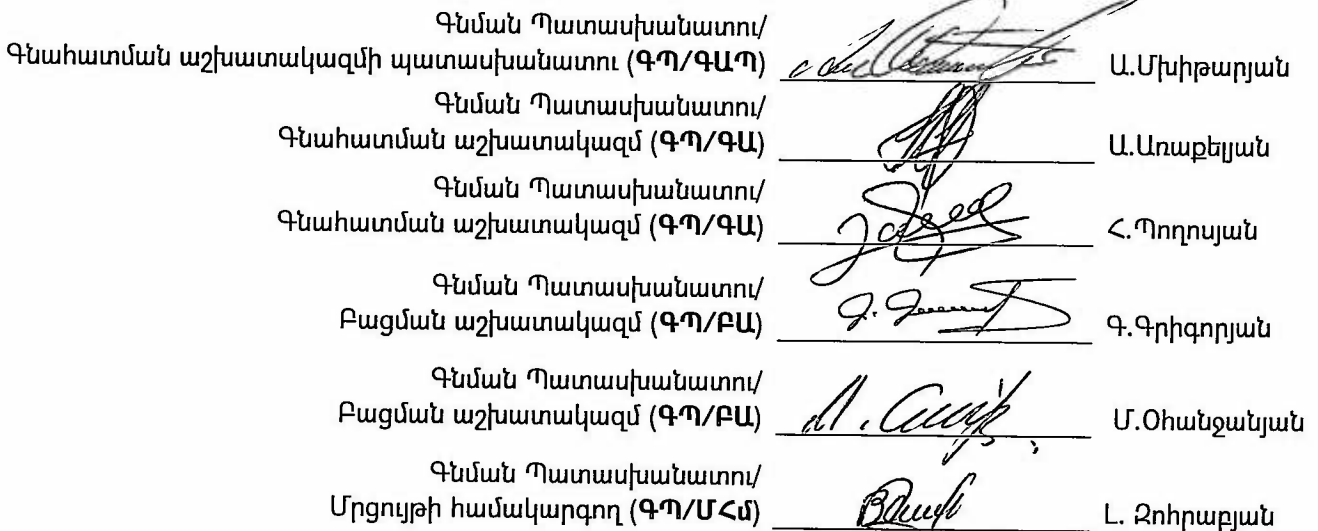 Գնման Պատասխանատու/
Գնահատման աշխատակազմի պատասխանատու (ԳՊ/ԳԱՊ) Ա.Մխիթարյան
Գնման Պատասխանատու/
Գնահատման աշխատակազմ (ԳՊ/ԳԱ) Ա.Առաքելյան
Գնման Պատասխանատու/
Գնահատման աշխատակազմ (ԳՊ/ԳԱ) Հ.Պողոսյան
Գնման Պատասխանատու/
Բացման աշխատակազմ (ԳՊ/ԲԱ) Գ.Գրիգորյան
Գնման Պատասխանատու/
Բացման աշխատակազմ (ԳՊ/ԲԱ) Մ.Օհանջանյան
Գնման Պատասխանատու/
Մրցույթի համակարգող (ԳՊ/ՄՀմ) Լ. Զոհրաբյան